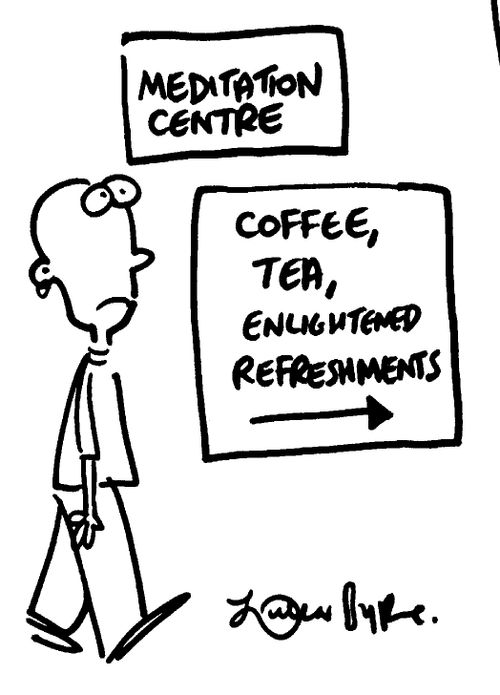 MEDITATION
CENTRE
COFFEE,
TEA,
ENLIGHTENED
REFRESHMENTS